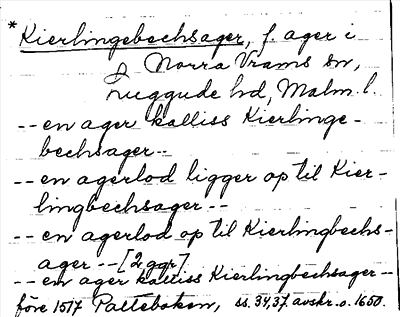 *Kierlingebechsager, f. ager i
Norra Vrams sn,
Luggude hd, Malm. l.
-- en ager kalliss Kierlinge-
bechsager --
-- en agerlod ligger op til Kier-
lingbechsager --
-- en agerlod op til Kierlingbechs-
ager -- [2 ggr]
-- em ager kalliss Kierlingbechsager --
före 1517 Palteboken, ss. 34,37. avskr. o. 1650.